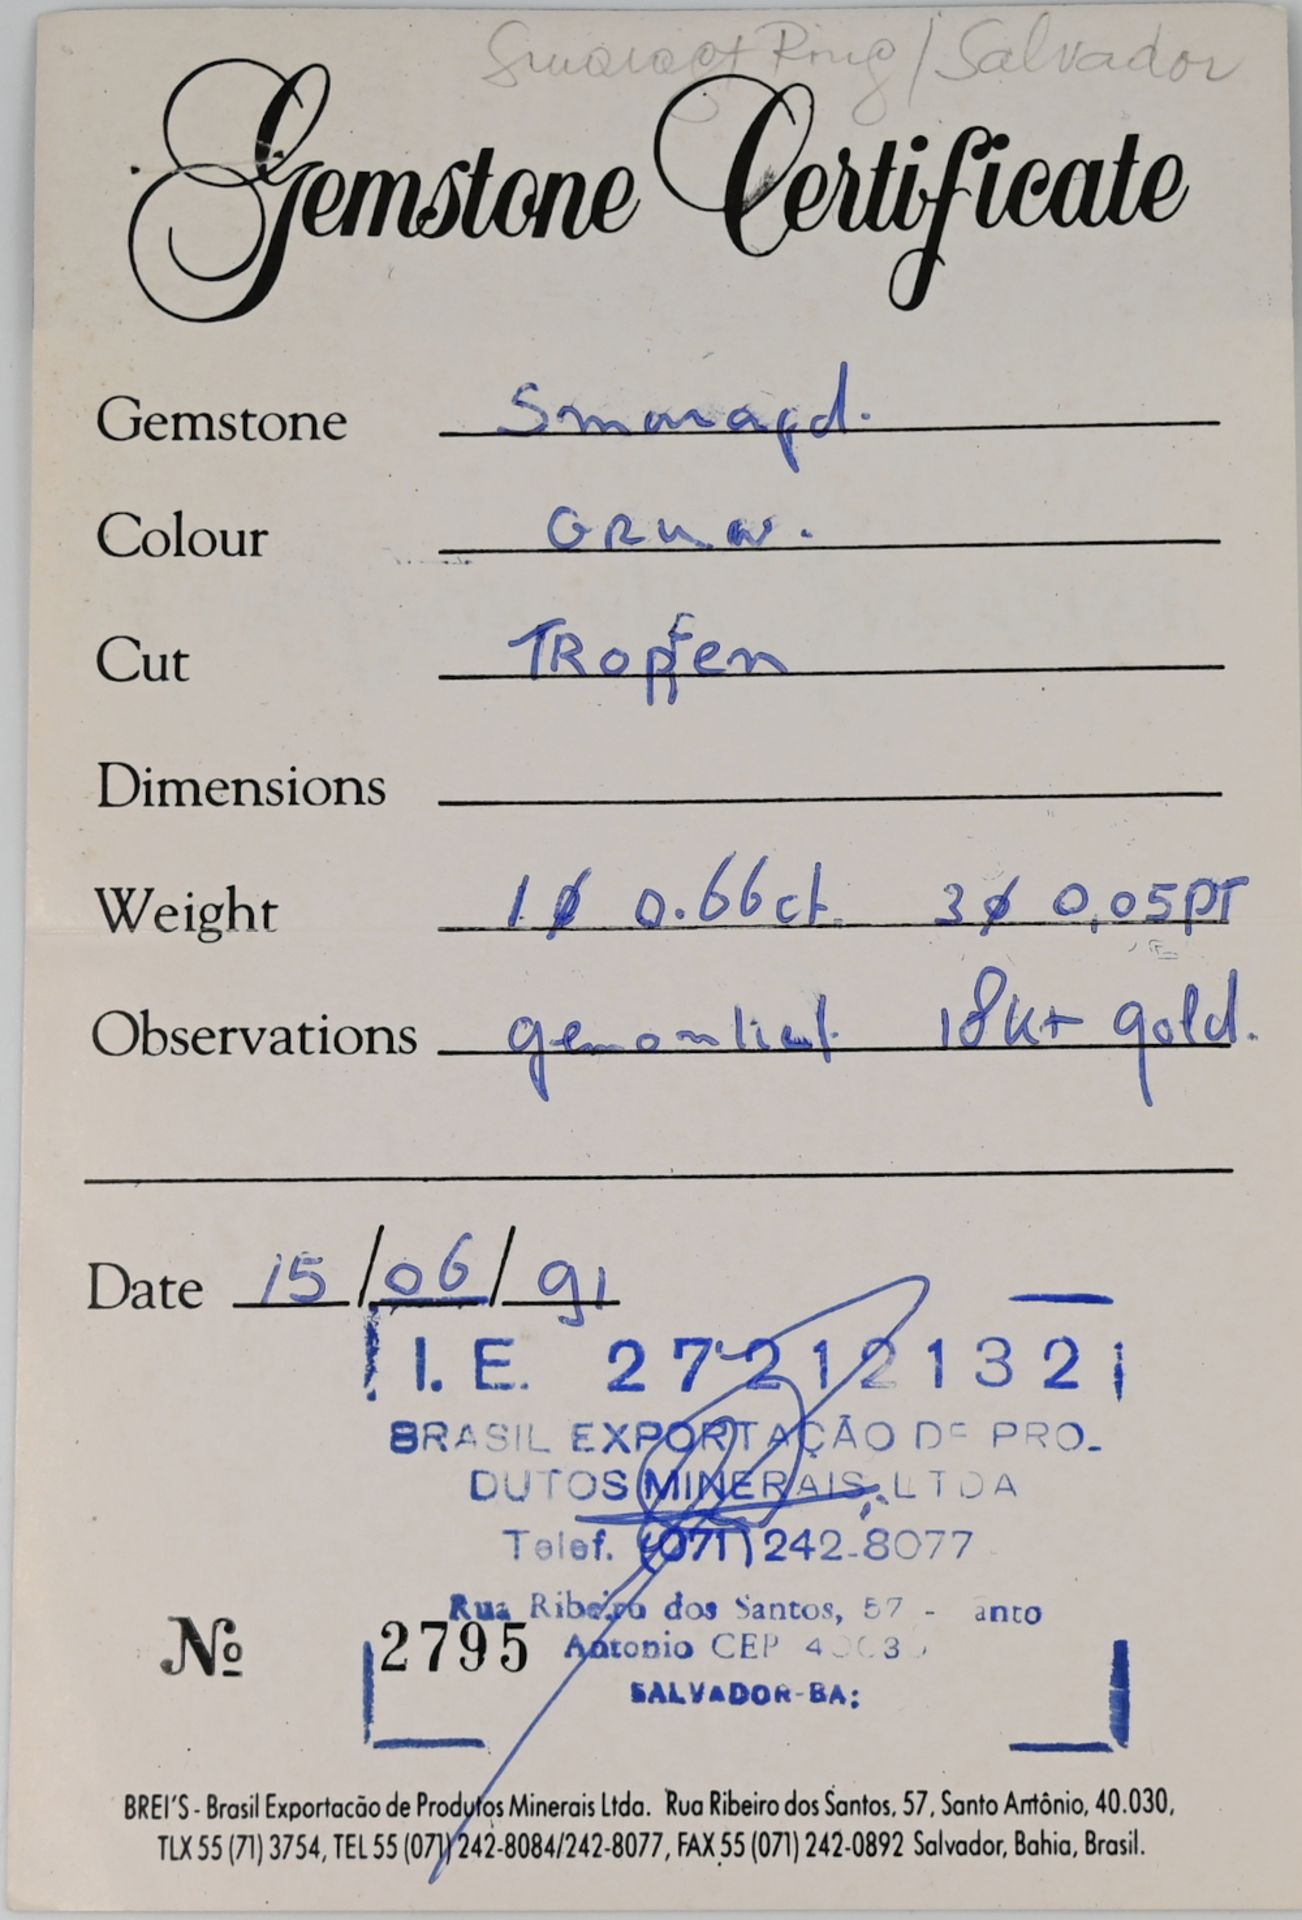 Smaragt Ring / Salvador
Gemstone Certificate
Gemstone Smaragd.
Colour GRun.
Cut TRopfen
Dimensions
Weight 1 ∅ 0.66ct 3 ∅ 0,05PT
Observations 18kt gold.
Date 15/06/91
I.E. 272121321
BRASIL EXPORTAÇÃO DE PRO-
DUTOS MINERAIS LTDA
Telef. (071) 242-8077
Rua Ribeiro dos Santos, 57 - anto
Antonio CEP
SALVADOR-BA:
№ 2795
BREI'S - Brasil Exportacão de Produtos Minerais Ltda. Rua Ribeiro dos Santos, 57, Santo Antônio, 40.030,
TLX 55 (71) 3754, TEL 55 (071) 242-8084/242-8077, FAX 55 (071) 242-0892 Salvador, Bahia, Brasil.